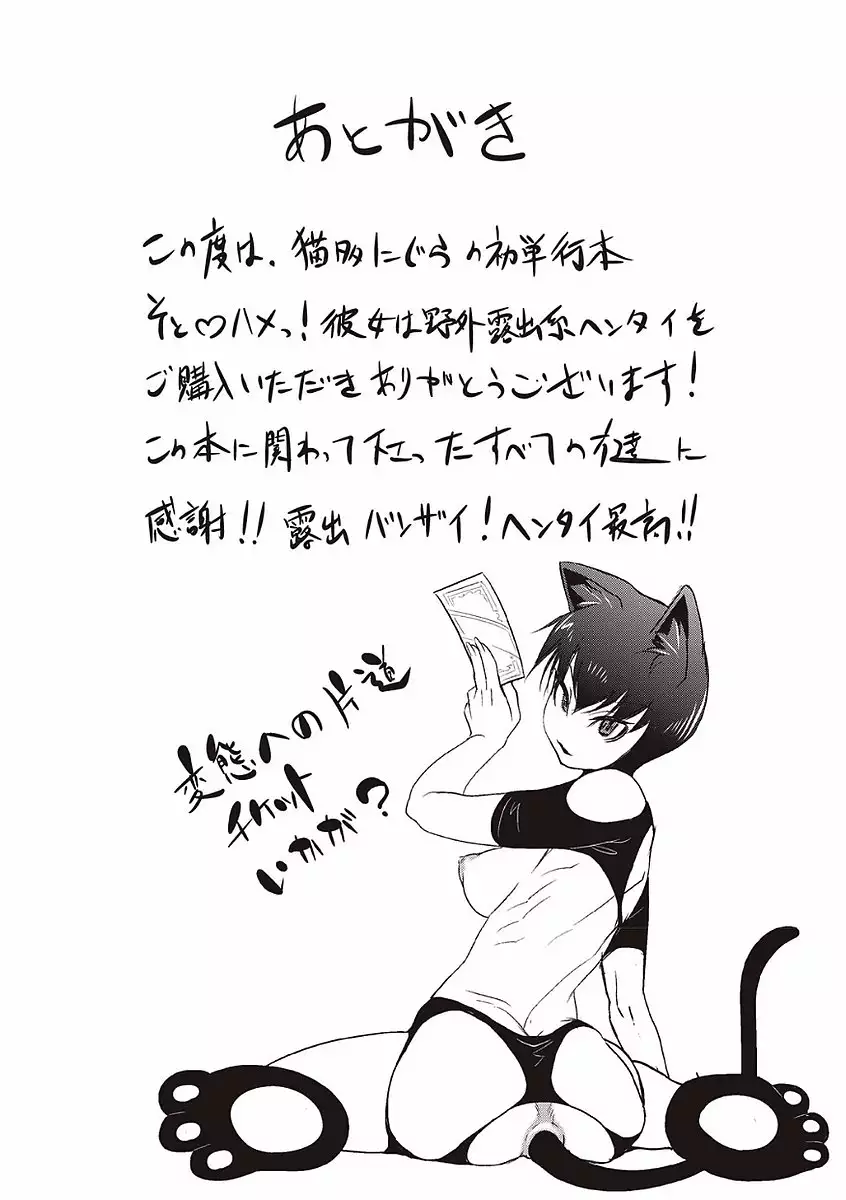 あとがき
この度は、猫夛にぐらの初単行本
そと♡ハメっ！彼女は野外露出系ヘンタイを
ご購入いただきありがとうございます！
この本に関わって下さったすべての方達に
感謝!! 露出バンザイ！ヘンタイ最高!!
変態への片道
チケット
いかが？